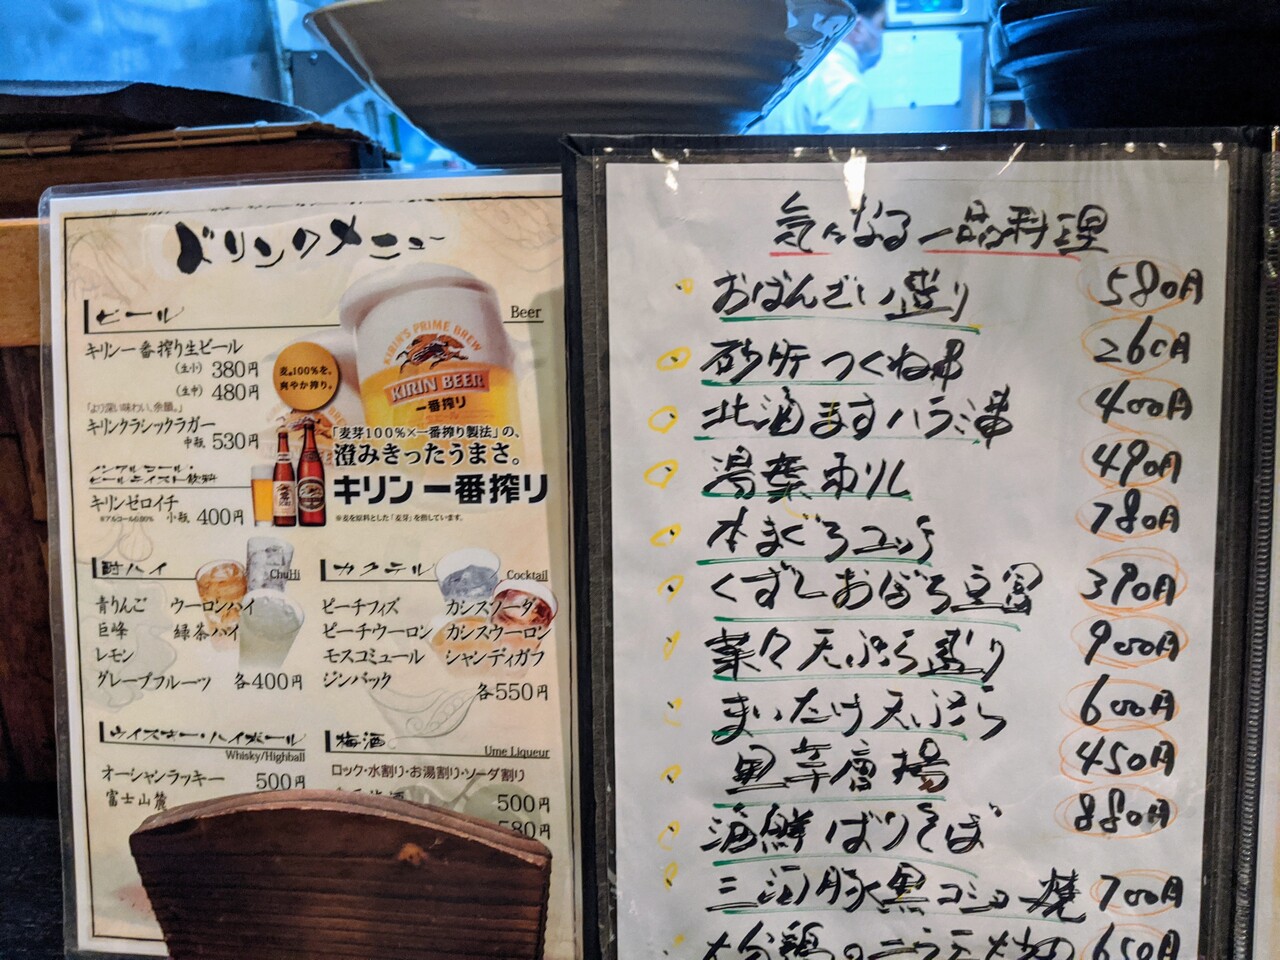 ドリンクメニュー
ビール Beer
キリン一番搾り生ビール
(生小) 380円
(生中) 480円
「より深い味わい、余韻。」
キリンクラシックラガー
中瓶 530円
ノンアルコール・
ビールテイスト飲料
キリンゼロイチ
※アルコール0.00% 小瓶 400円
麦芽100%を、
爽やか搾り。
KIRIN'S PRIME BREW
KIRIN BEER
一番搾り
「麦芽100%×一番搾り製法」の、
澄みきったうまさ。
キリン一番搾り
※麦を原料とした「麦芽」を指しています。
酎ハイ ChuHi
青りんご ウーロンハイ
巨峰 緑茶ハイ
レモン
グレープフルーツ 各400円
カクテル Cocktail
ピーチフィズ カシスソーダ
ピーチウーロン カシスウーロン
モスコミュール シャンディガフ
ジンバック
各550円
ウイスキー・ハイボール
Whisky/Highball
オーシャンラッキー 500円
富士山麓
梅酒
Ume Liqueur
ロック・水割り・お湯割り・ソーダ割り
500円
580円
気になる一品料理
おばんざい盛り 580円
砂肝つくね串 260円
北海ますハラス串 400円
湯葉刺し 490円
本まぐろユッケ 780円
くずしおぼろ豆冨 390円
菜々天ぷら盛り 900円
まいたけ天ぷら 600円
450円
海鮮ばりそば 880円
三河豚黒コショー焼 700円
650円